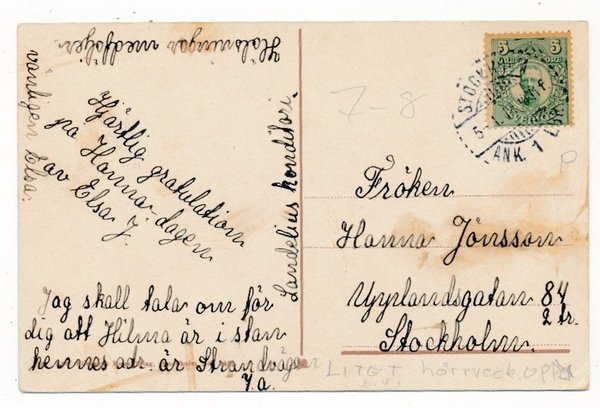 Hälsningar medföljer
vänligen Elsa.
Hjärtlig gratulation
på Hanna-dagen
av Elsa J.
Jag skall tala om för
dig att Hilma är i stan
hennes adr. är Strandvägen
7.a.
Landelius konditori.
7-8
5 5
STOCKHOLM
ANK. 1
Fröken
Hanna Jönsson
Upplandsgatan 84
2 tr.
Stockholm.
LITET hörnveck UPP
P